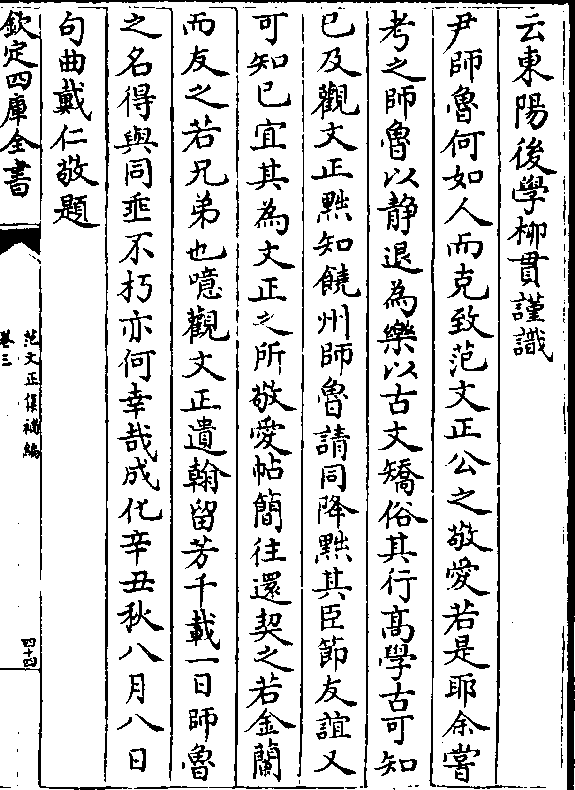 云東陽後學柳貫謹識
尹師魯何如人而克致范文正公之敬愛若是耶余嘗
考之師魯以静退為樂以古文矯俗其行髙學古可知
已及觀文正黜知饒州師魯請同降黜其臣節友誼又
可知已宜其為文正之所敬愛帖簡往還契之若金蘭
而友之若兄弟也噫觀文正遺翰留芳千載一日師魯
之名得與同垂不朽亦何幸哉成化辛丑秋八月八日
句曲戴仁敬題
欽定四庫全書
范文正集補編
卷三
四十四